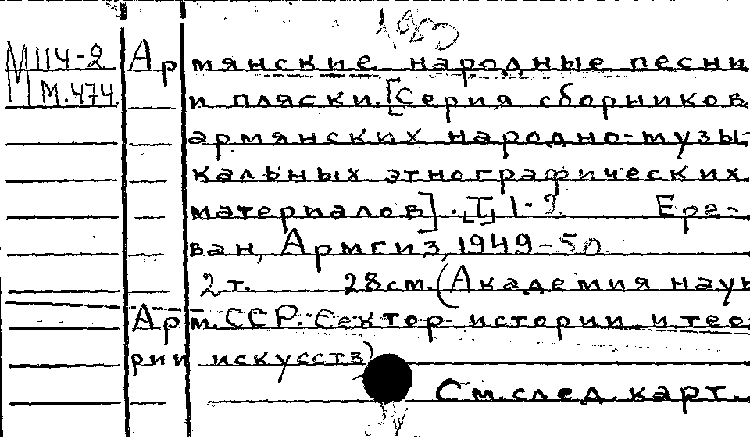 М114-2 Армянские народные песни
М.474 и пляски. [Серия сборников
армянских народно-музы-
кальных этнографических
материалов]. Т. 1-2. Ере-
ван, Армгиз, 1949-50
2 т. 28 см. (Академия наук
Арм. ССР. Сектор истории и тео-
рии искусств)
См. след. карт.